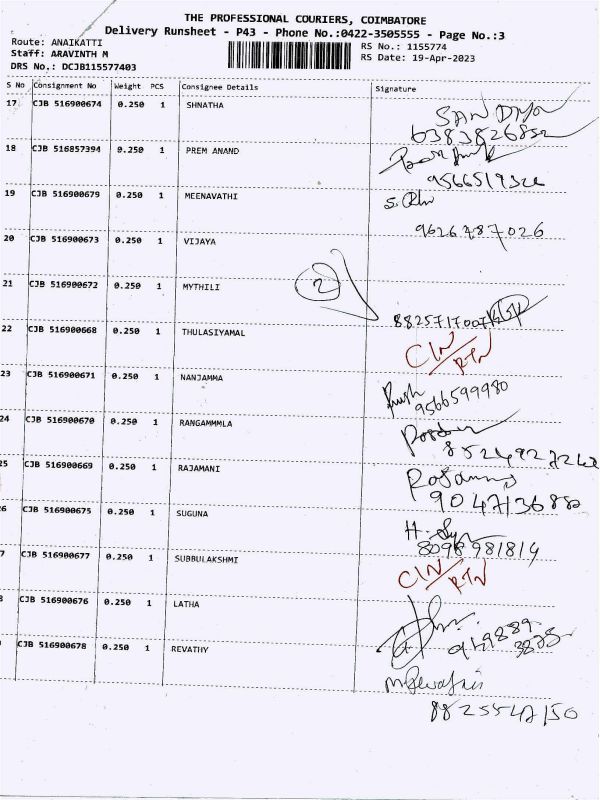 THE PROFESSIONAL COURIERS, COIMBATORE
Delivery Runsheet - P43 - Phone No.:0422-3505555 - Page No.:3
Route: ANAIKATTI
Staff: ARAVINTH M
DRS No.: DCJB115577403
RS No.: 1155774
RS Date: 19-Apr-2023
S No Consignment No Weight PCS Consignee Details Signature
17 CJB 516900674 0.250 1 SHNATHA
6383826852
18 CJB 516857394 0.250 1 PREM ANAND
19 CJB 516900679 0.250 1 MEENAVATHI
9626787026
20 CJB 516900673 0.250 1 VIJAYA
2
21 CJB 516900672 0.250 1 MYTHILI
8825717007
22 CJB 516900668 0.250 1 THULASIYAMAL
CIN/RTN
23 CJB 516900671 0.250 1 NANJAMMA
9566599980
24 CJB 516900670 0.250 1 RANGAMMMLA
25 CJB 516900669 0.250 1 RAJAMANI
9047136880
6 CJB 516900675 0.250 1 SUGUNA
8098981814
7 CJB 516900677 0.250 1 SUBBULAKSHMI
CIN/RTN
8 CJB 516900676 0.250 1 LATHA
CJB 516900678 0.250 1 REVATHY
8825547150